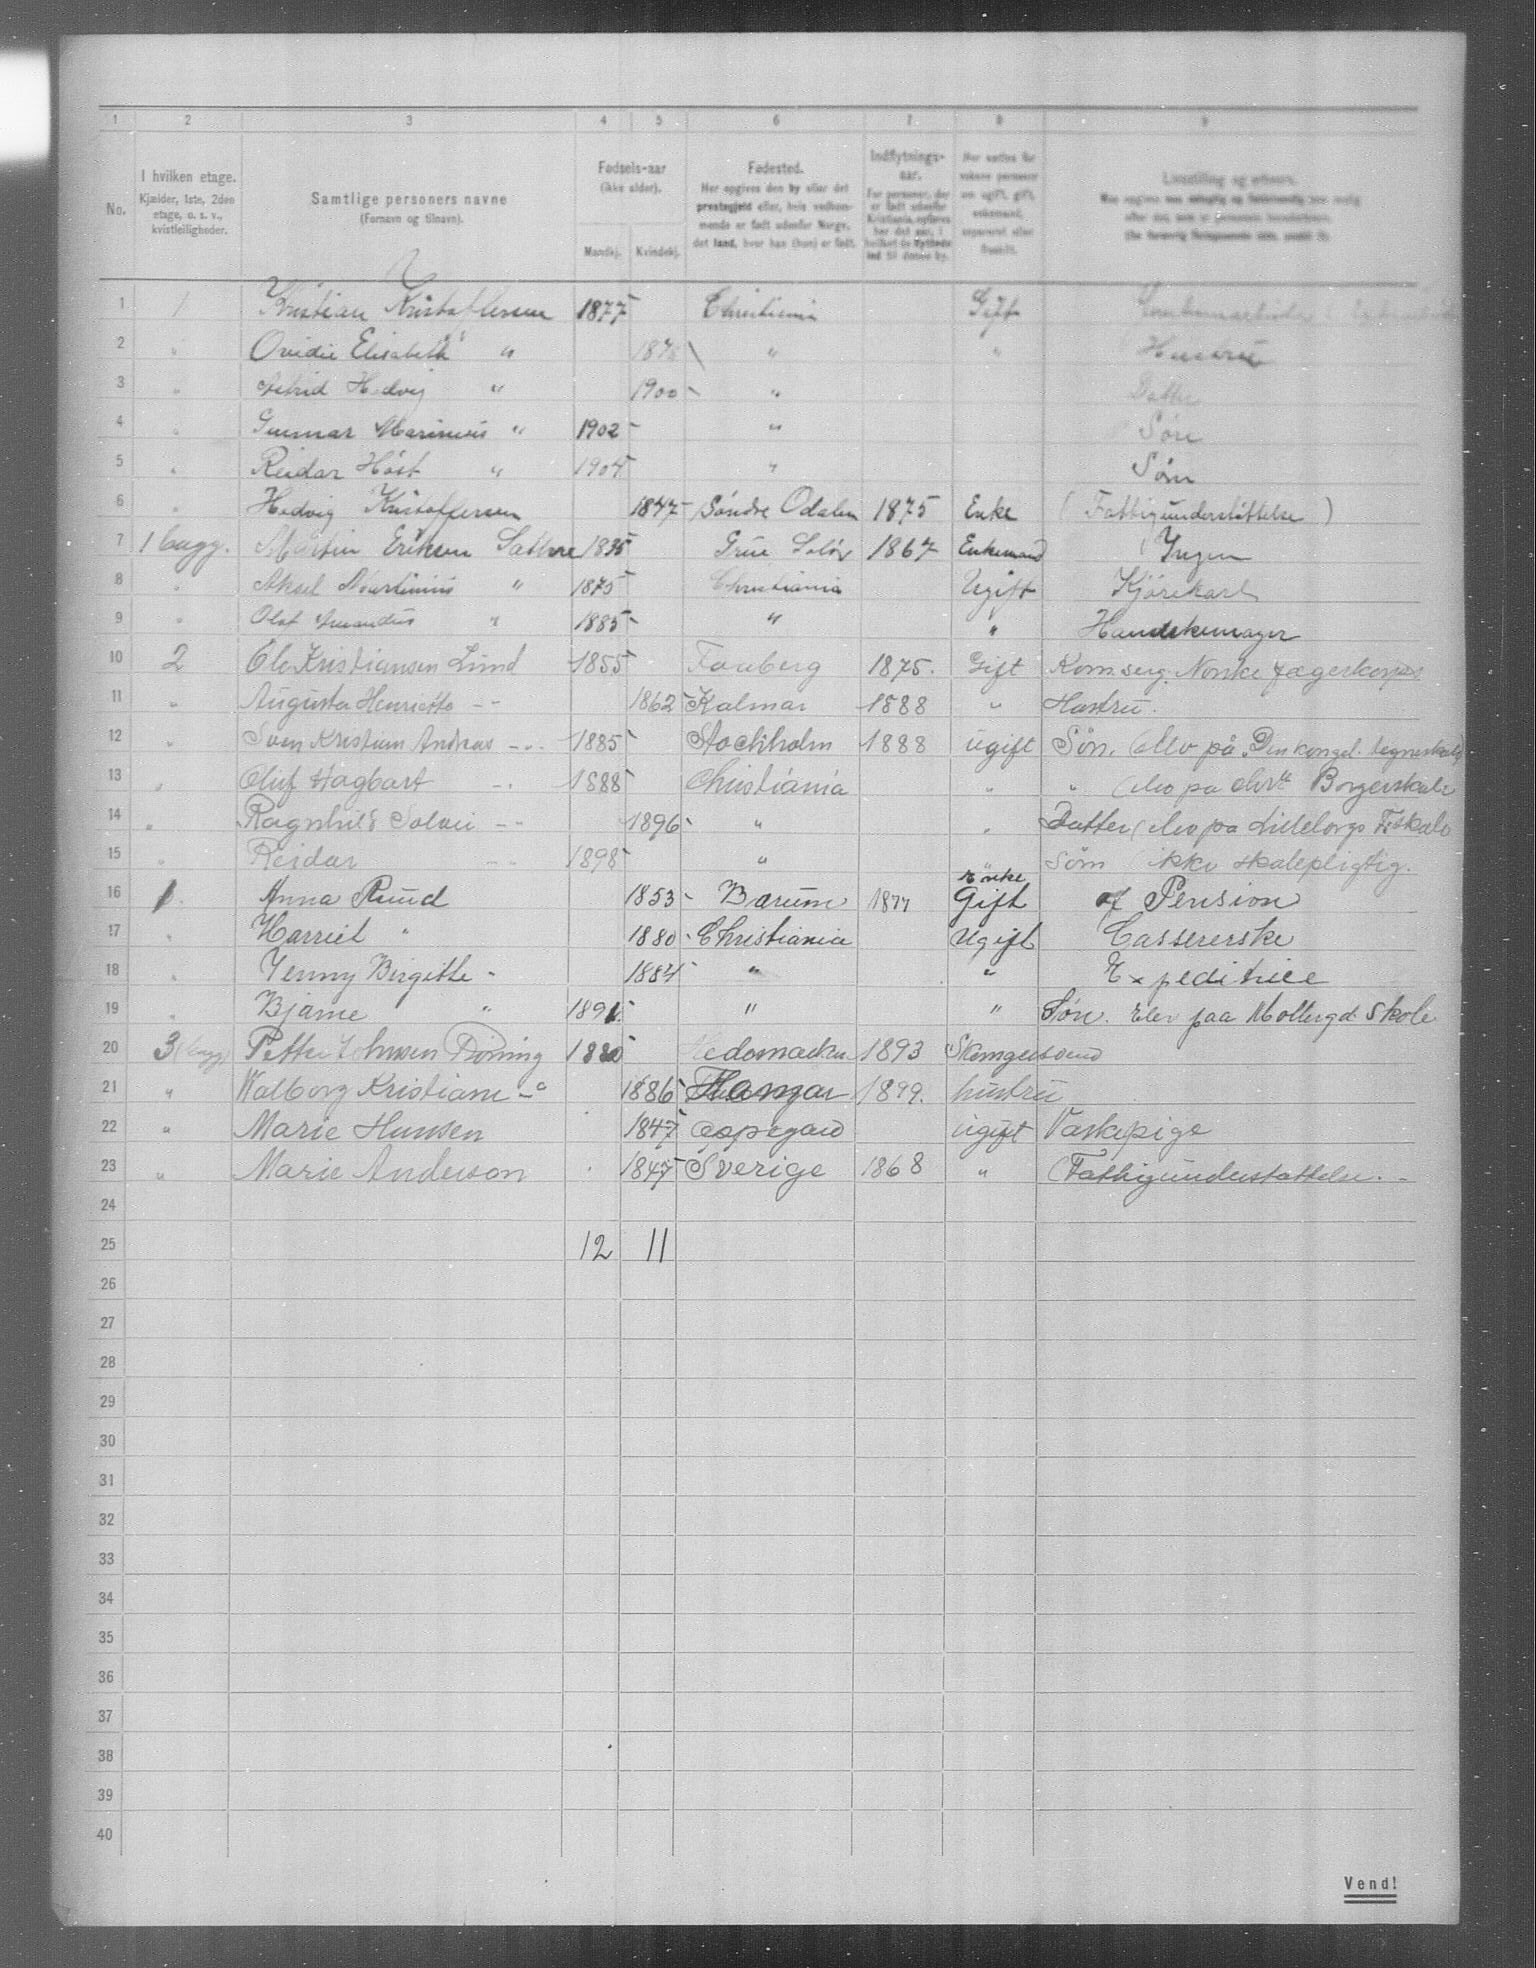 1 2 3 4 5 6 7 8 9
No.
I hvilken etage.
Kjælder, 1ste, 2den
etage, o. s. v.,
kvistleiligheder.
Samtlige personers navne
(Fornavn og tilnavn).
Fødsels-aar
(ikke alder).
Mandkj. Kvindekj.
Fødested.
Her opgives den by eller det
prestegjeld eller, hvis vedkom-
mende er født udenfor Norge,
det land, hvor han (hun) er født.
Indflytnings-
aar.
For personer, der
er født udenfor
Kristiania, opføres
her det aar, i
hvilket de flyttede
ind til denne by.
Her sættes for
voksne personer
om ugift, gift,
enkemand,
separeret eller
fraskilt.
Livsstilling og erhverv.
1 1 Kristian Kristoffersen 1877 Christiania Gift
2 " Ovidie Elisabeth " " " Hustru
3 " Astrid Hedvig " 1900 " Datter
4 " Gunnar Marinius " 1902 " Søn
5 " Reidar Høst " 1904 " Søn
6 " Hedvig Kristoffersen 1847 Søndre Odalen 1875 Enke (Fattigunderstøttelse)
7 1 bagg. Martin Eriksen Sæthre 1835 Grue Solør 1867 Enkemand Ingen
8 " Aksel Martinius " 1875 Christiania Ugift Kjørekarl
9 " Olaf Amandus " 1885 " " Handskemager
10 2 Ole Kristiansen Lund 1855 Faaberg 1875. Gift Kom.serg. Norske Jægerkorps
11 " Augusta Henriette -"- 1862 Kalmar 1888 " Hustru.
12 " Sven Kristian Andreas -"- 1885 Stockholm 1888 ugift Søn. (elev på Den kongel. tegneskole)
13 " Oluf Hagbart -"- 1888 Christiania " " (elev pa chr. Borgerskole
14 " Ragnhild Solvei -"- 1896 " " Datter (elev pa Lilleborgs Fskole
15 " Reidar -"- 1898 " Søn (ikke skolepligtig.
16 1. Anna Ruud 1853 Bærum 1877 Enke Gift af Pension
17 " Harriet " 1880 Christiania Ugift Cassererske
18 " Jenny Birgitte " 1884 " " Expeditrice
19 " Bjarne " 1891. " " Søn. Elev paa Møllergd Skole
20 3 (bagg) Petter Johnsen 1880 Hedemarken 1893
21 " Valborg Kristiane -"- 1886 Hamar 1899. hustru
22 " Marie Hansen 1847 ugift Vaskepige
23 " Marie Anderson 1847 Sverige 1868 " (Fattigunderstøttelse.
24
25 12 11
26
27
28
29
30
31
32
33
34
35
36
37
38
39
40
Vend!